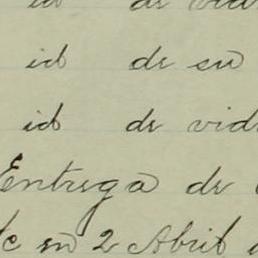 id de vid
id de su
id de vid
Entrega de
en 2 Abril